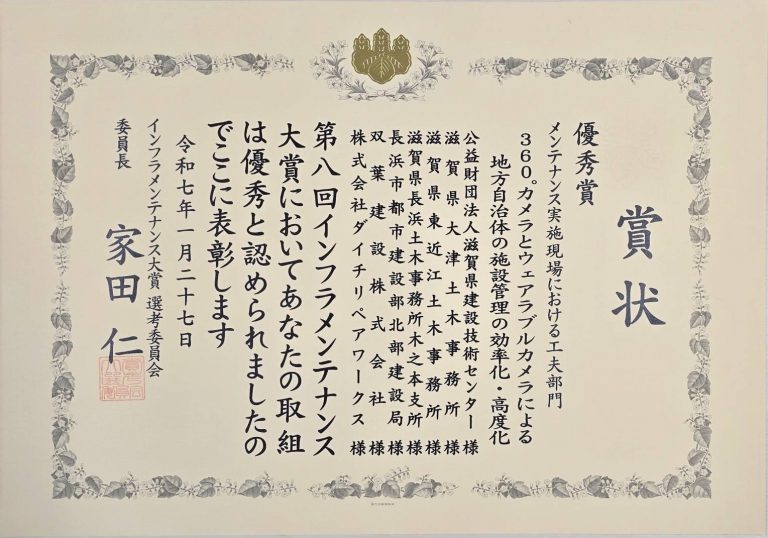 賞状
優秀賞
メンテナンス実施現場における工夫部門
360°カメラとウェアラブルカメラによる
地方自治体の施設管理の効率化・高度化
公益財団法人滋賀県建設技術センター 様
滋賀県大津土木事務所 様
滋賀県東近江土木事務所 様
滋賀県長浜土木事務所木之本支所 様
長浜市都市建設部北部建設局 様
双葉建設株式会社 様
株式会社ダイチリペアワークス 様
第八回インフラメンテナンス
大賞においてあなたの取組
は優秀と認められましたの
でここに表彰します
令和七年一月二十七日
インフラメンテナンス大賞 選考委員会
委員長
家田 仁